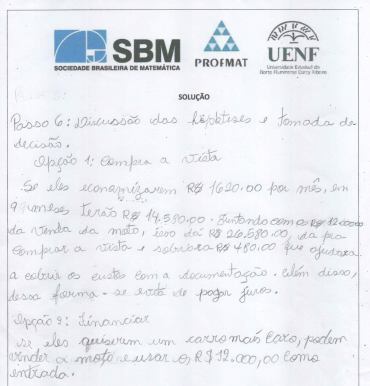 SBM
SOCIEDADE BRASILEIRA DE MATEMÁTICA
PROFMAT
UENF
Universidade Estadual do
Norte Fluminense Darcy Ribeiro
SOLUÇÃO
Passo 6: Discussão das hipóteses e tomada de
decisão.
Opção 1: Compra a vista
Se eles economizarem R$ 1620.00 por mês, em
9 meses terão R$ 14.580.00. Juntando com os R$ 12.000.00
da venda da moto, isso dá R$ 26.580.00, dá pra
comprar a vista e sobrará R$ 480.00 que ajudará
a cobrir os custos com a documentação. Além disso,
dessa forma - se evita de pagar juros.
Opção 2: Financiar
se eles quiserem um carro mais caro, podem
vender a moto e usar os R$ 12.000,00 como
entrada.